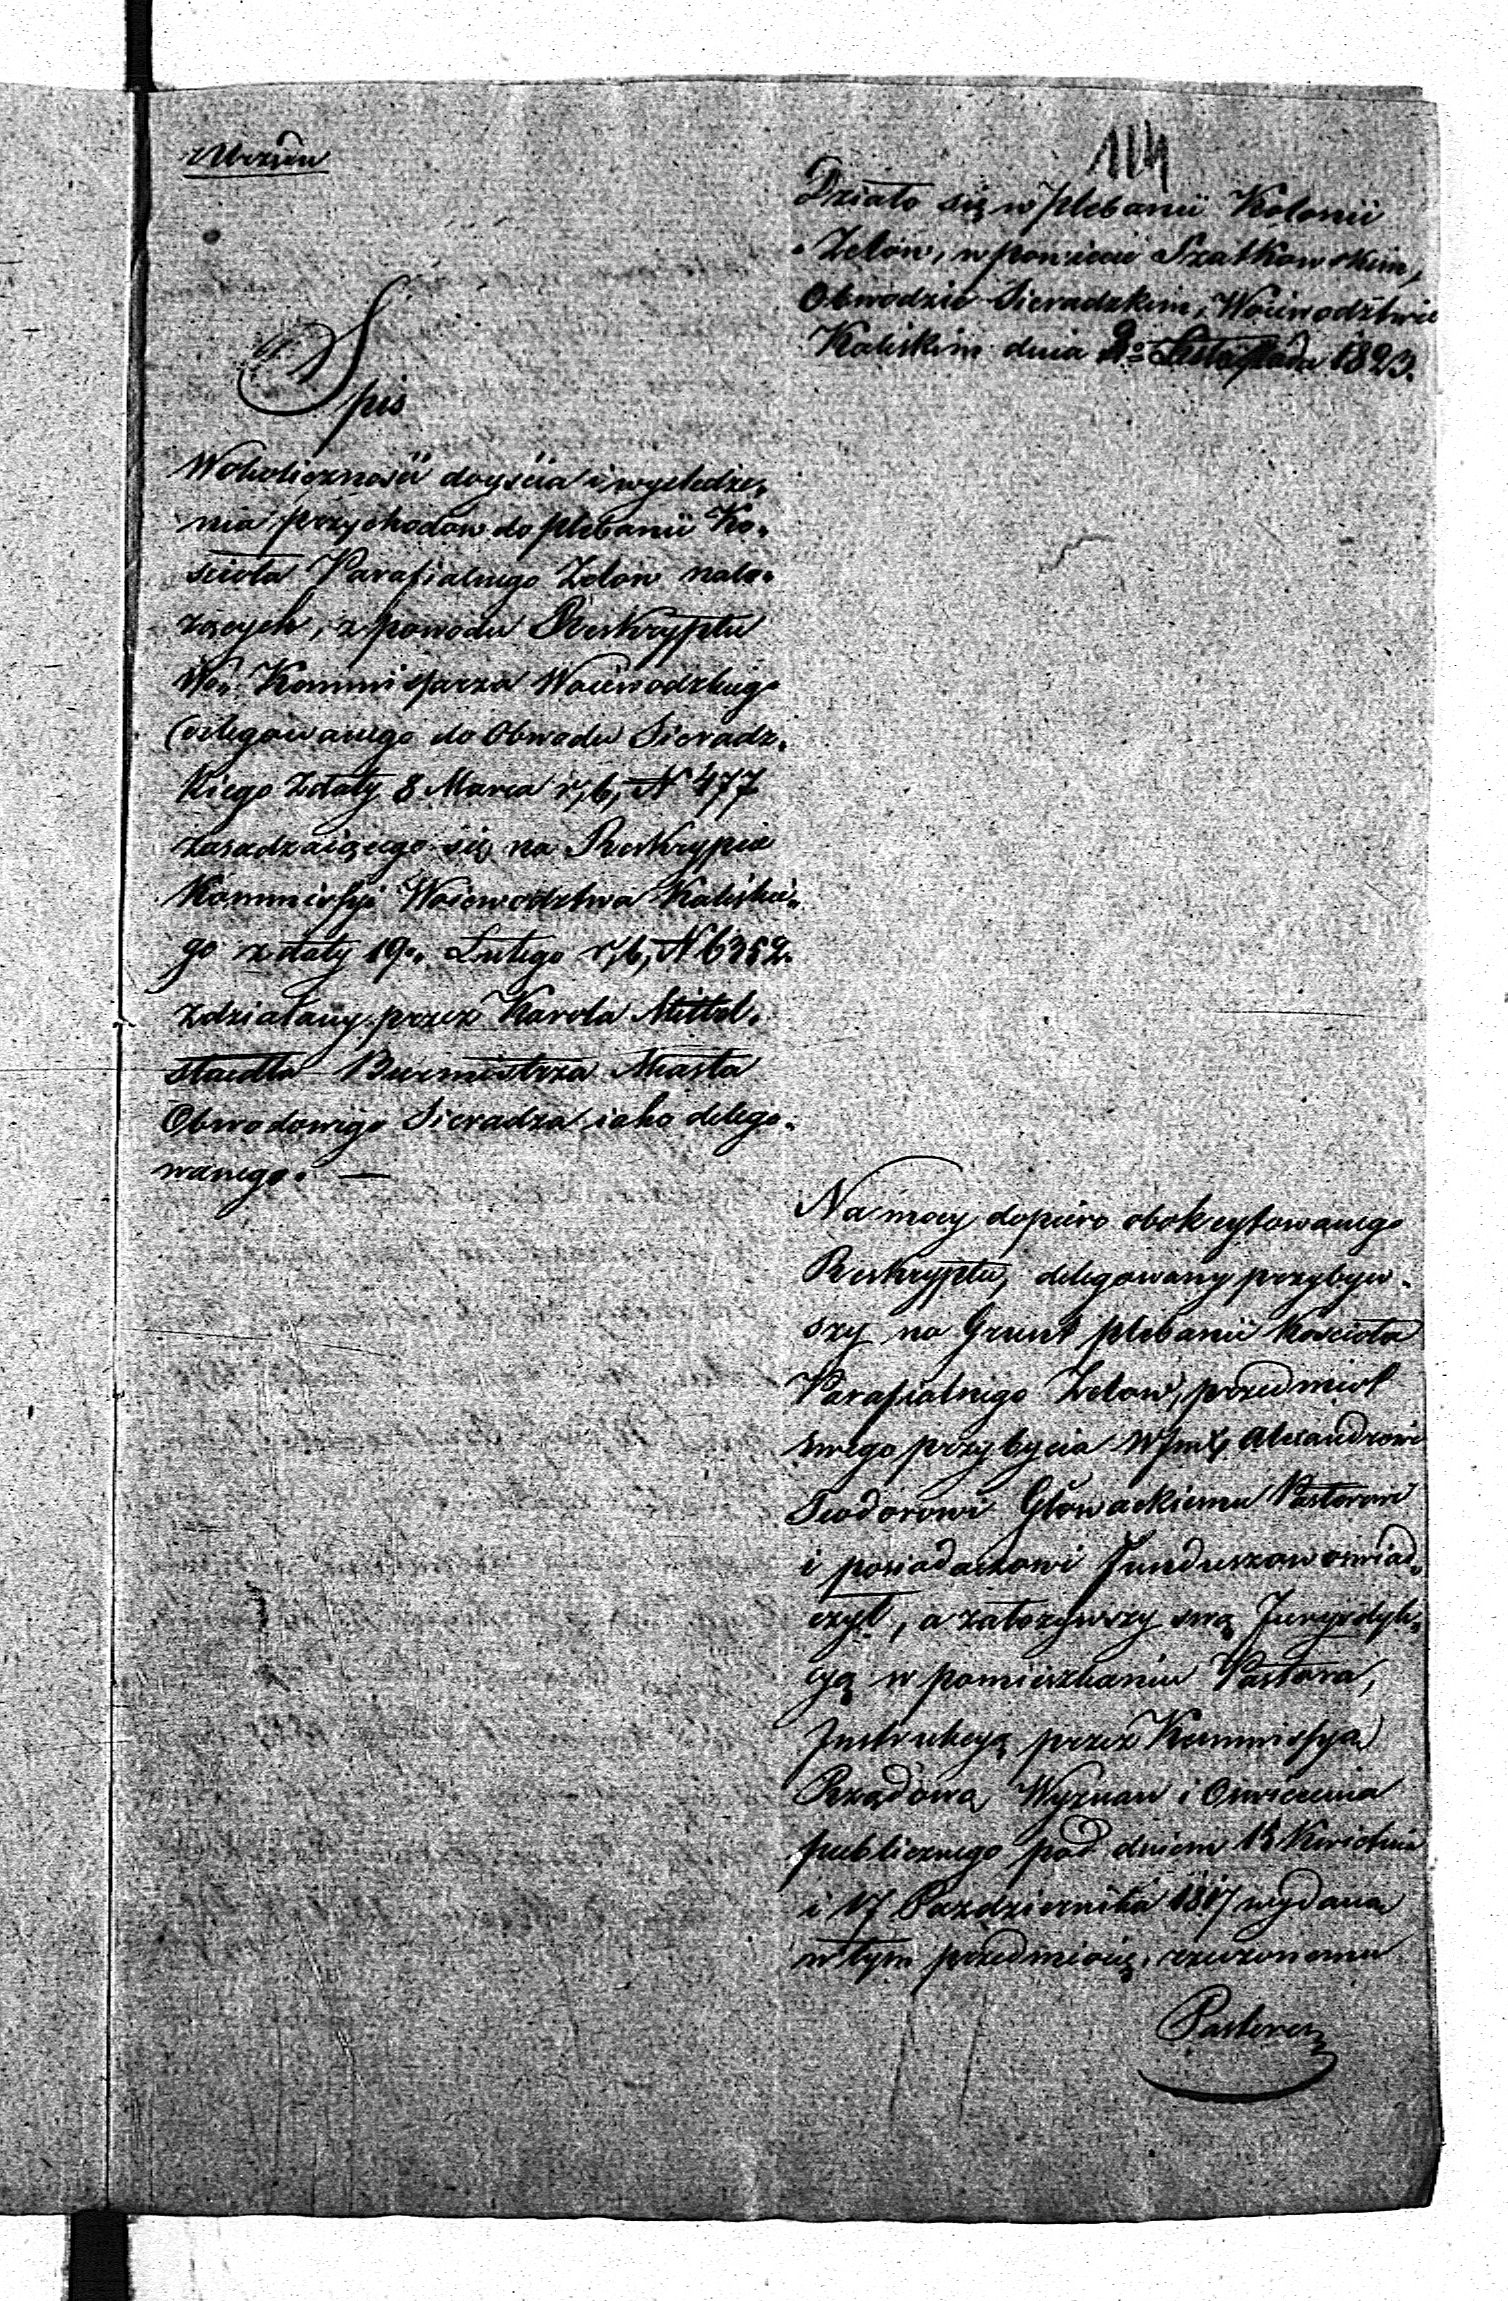 114
Działo się w plebanii Kolonii
Zelow, w powiecie Szatkowskim,
Obwodzie Sieradzkim, Woiewodztwie
Kaliskim dnia 2º Listopada 1823.
Spis
W okoliczności doyścia i wyśledze„
nia przychodow do plebanii Ko„
scioła Parafialnego Zelow nale„
żących, z powodu Reskryptu
Wo. Kommissarza Woiewodzkiego
delegowanego do Obwodu Sieradz„
kiego z daty 8 Marca r, b, N 477
zasadzaiącego się na Reskrypcie
Kommissyi Woiewodztwa Kaliskie„
go z daty 19º. Lutego r, b, N 6352.
zdziałany przez Karola Mittel„
staedta Burmistrza Miasta
Obwodowego Sieradza iako delego„
wanego. —
Na mocy dopiero obok cytowanego
Reskryptu, delegowany przybyw„
szy na Grunt plebanii Kościoła
Parafialnego Zelow, przedmiot
swego przybycia WJmX Alexandrowi
Teodorowi Głowackiemu Pastorowi
i posiadaczowi Funduszow oswiad„
czył, a założywszy swą Jurysdyk„
cyą w pomieszkaniu Pastora,
Instrukcyą przez Kommissyą
Rządową Wyznan i Oswiecenia
publicznego pod dniem 15 Kwietnia
i 17 Października 1817 wydaną
w tym przedmiocie, rzeczonemu